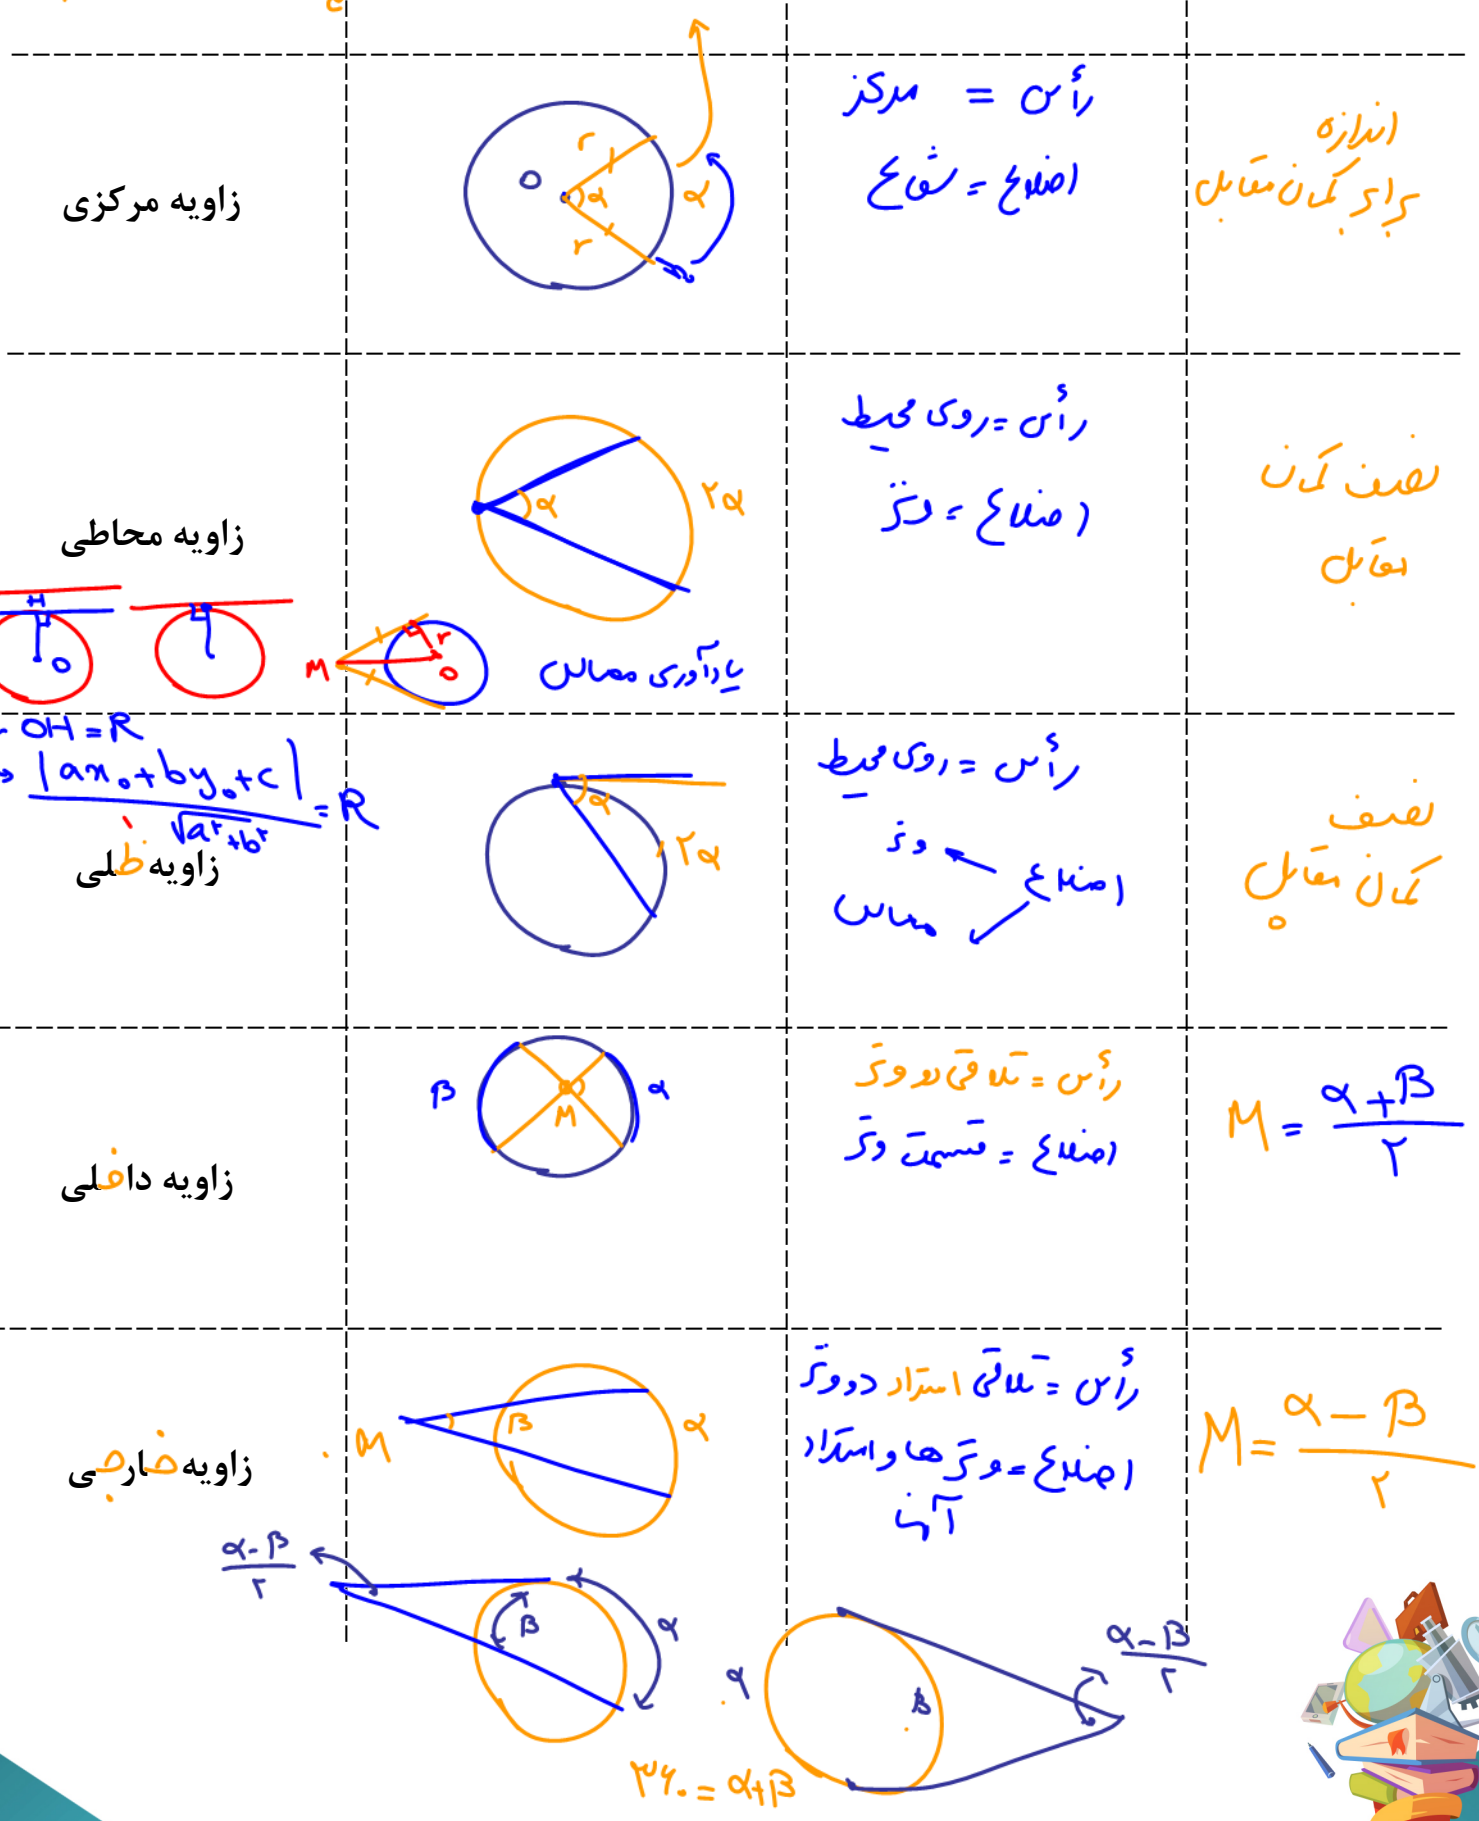 زاویه مرکزی
O
r
r
α
α
رأس = مرکز
اضلاع = شعاع
اندازه
برابر کمان مقابل
زاویه محاطی
α
۲α
رأس = روی محیط
اضلاع = وتر
نصف کمان
مقابل
H
O
M
r
O
یادآوری مماس
OH = R
|ax₀+by₀+c| / √a²+b² = R
زاویه ظلی
α
۲α
رأس = روی محیط
اضلاع
وتر
مماس
نصف
کمان مقابل
زاویه داخلی
β
α
M
رأس = تلاقی دو وتر
اضلاع = قسمت وتر
M = α+β / ۲
زاویه خارجی
M
β
α
رأس = تلاقی امتداد دو وتر
اضلاع = وترها و امتداد
آنها
M = α-β / ۲
α-β / ۲
β
α
α
β
α-β / ۲
۳۶۰ = α+β